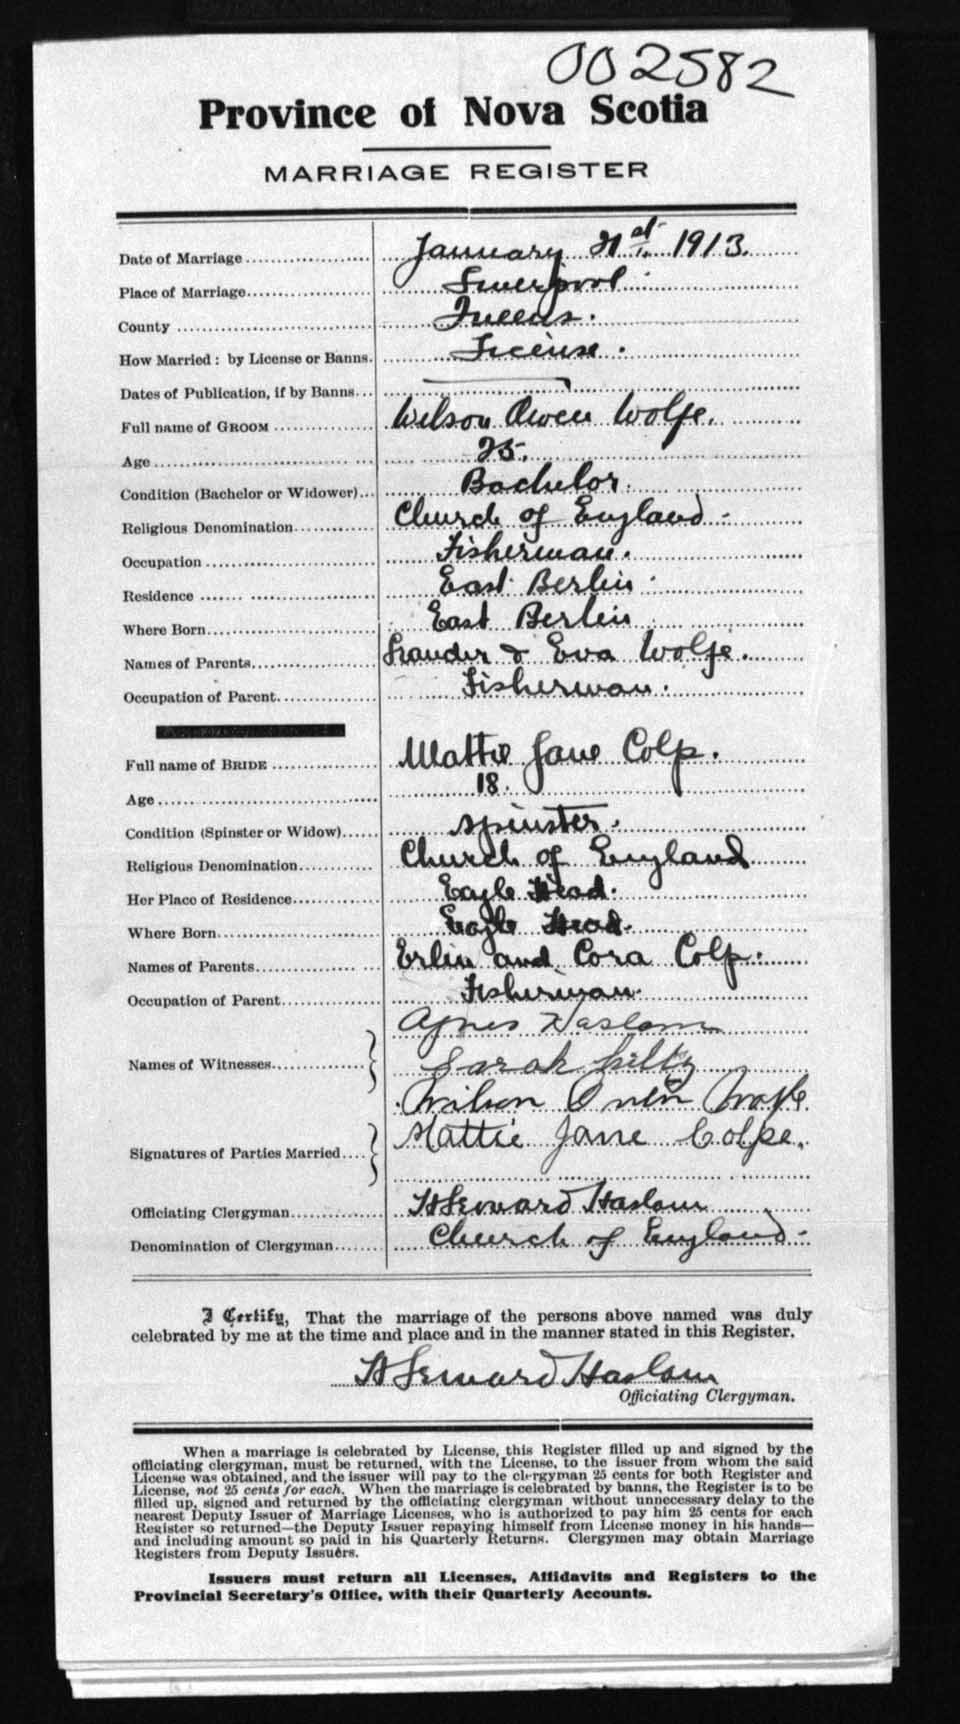 002582
Province of Nova Scotia
MARRIAGE REGISTER
Date of Marriage January 21st, 1913.
Place of Marriage Liverpool
County Queens.
How Married: by License or Banns. License.
Dates of Publication, if by Banns
Full name of GROOM Wilson Owen Wolfe.
Age 25.
Condition (Bachelor or Widower) Bachelor.
Religious Denomination Church of England.
Occupation Fisherman.
Residence East Berlin
Where Born East Berlin
Names of Parents Leander & Eva Wolfe.
Occupation of Parent Fisherman.
Full name of BRIDE Mattie Jane Colp.
Age 18.
Condition (Spinster or Widow) Spinster.
Religious Denomination Church of England
Her Place of Residence Eagle Head.
Where Born Eagle Head.
Names of Parents Erlin and Cora Colp.
Occupation of Parent Fisherman.
Agnes Haslam
Names of Witnesses Sarah
Wilson Owen Wolfe
Signatures of Parties Married Mattie Jane Colpe.
Officiating Clergyman H Leonard Haslam
Denomination of Clergyman Church of England.
I Certify, That the marriage of the persons above named was duly
celebrated by me at the time and place and in the manner stated in this Register.
H Leonard Haslam
Officiating Clergyman.
When a marriage is celebrated by License, this Register filled up and signed by the
officiating clergyman, must be returned, with the License, to the issuer from whom the said
License was obtained, and the issuer will pay to the clergyman 25 cents for both Register and
License, not 25 cents for each. When the marriage is celebrated by banns, the Register is to be
filled up, signed and returned by the officiating clergyman without unnecessary delay to the
nearest Deputy Issuer of Marriage Licenses, who is authorized to pay him 25 cents for each
Register so returned—the Deputy Issuer repaying himself from License money in his hands—
and including amount so paid in his Quarterly Returns. Clergymen may obtain Marriage
Registers from Deputy Issuers.
Issuers must return all Licenses, Affidavits and Registers to the
Provincial Secretary's Office, with their Quarterly Accounts.